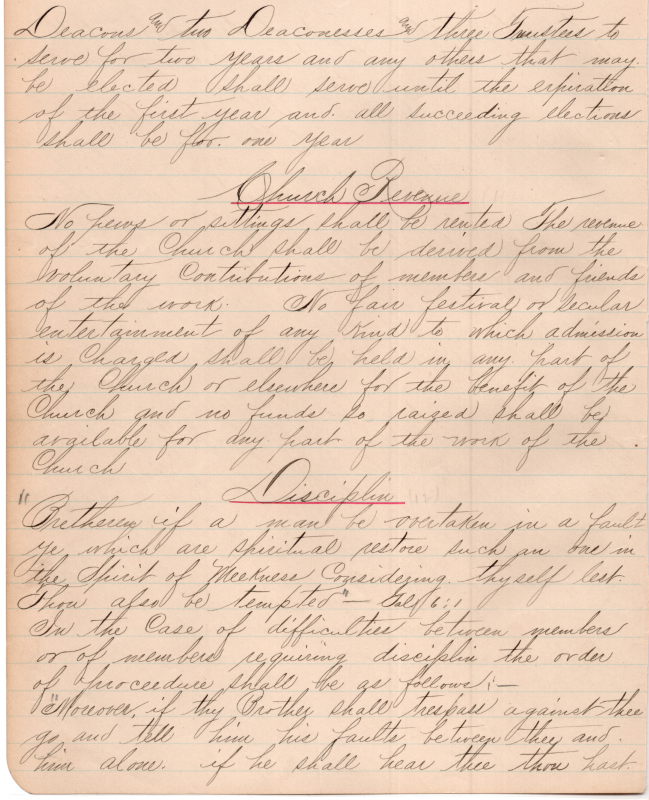 Deacons and two Deaconesses and three Trustees to
serve for two years and any others that may
be elected shall serve until the expiration
of the first year and all succeeding elections
shall be for one year
Church Revenue
No pews or sittings shall be rented The revenue
of the Church shall be derived from the
voluntary Contributions of members and friends
of the work. No fair festival or secular
entertainment of any kind to which admission
is Charged shall be held in any part of
the Church or elsewhere for the benefit of the
Church and no funds so raized shall be
available for any part of the work of the
Church
Disciplin (12)
"Bretheren if a man be overtaken in a fault
ye which are spiritual restore such an one in
the Spirit of Meekness Considering thyself lest
Thou also be tempted" — Gal 6:1
In the Case of difficulties between members
or of members requiring disciplin the order
of proceedure shall be as follows:—
"Moreover, if thy Brother shall trespass against thee
go, and tell him his faults between thee and
him alone. if he shall hear thee thou hast